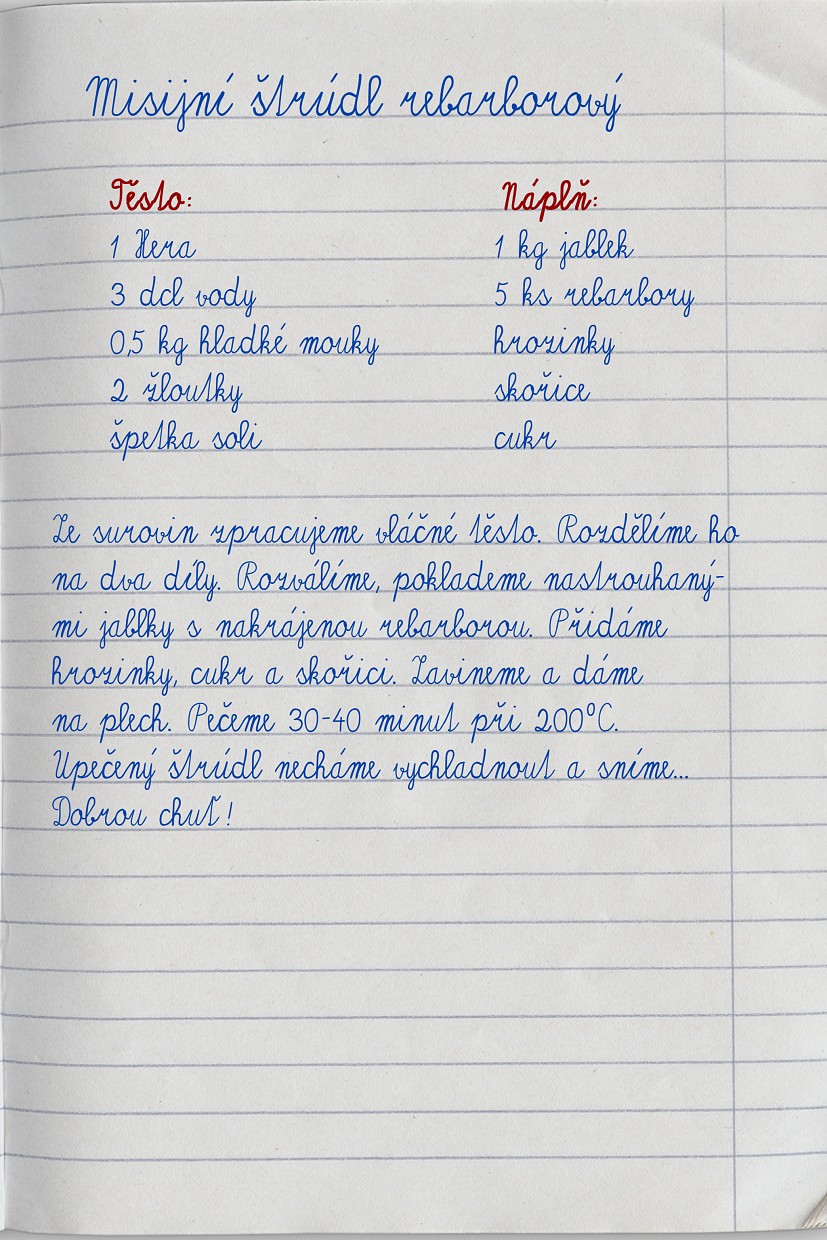 Misijní štrúdl rebarborový
Těsto:
Náplň:
1 Hera
1 kg jablek
3 dcl vody
5 ks rebarbory
0,5 kg hladké mouky
hrozinky
2 žloutky
skořice
špetka soli
cukr
Ze surovin zpracujeme vláčné těsto. Rozdělíme ho
na dva díly. Rozválíme, poklademe nastrouhaný-
mi jablky s nakrájenou rebarborou. Přidáme
hrozinky, cukr a skořici. Zavineme a dáme
na plech. Pečeme 30-40 minut při 200°C.
Upečený štrúdl necháme vychladnout a sníme...
Dobrou chuť!